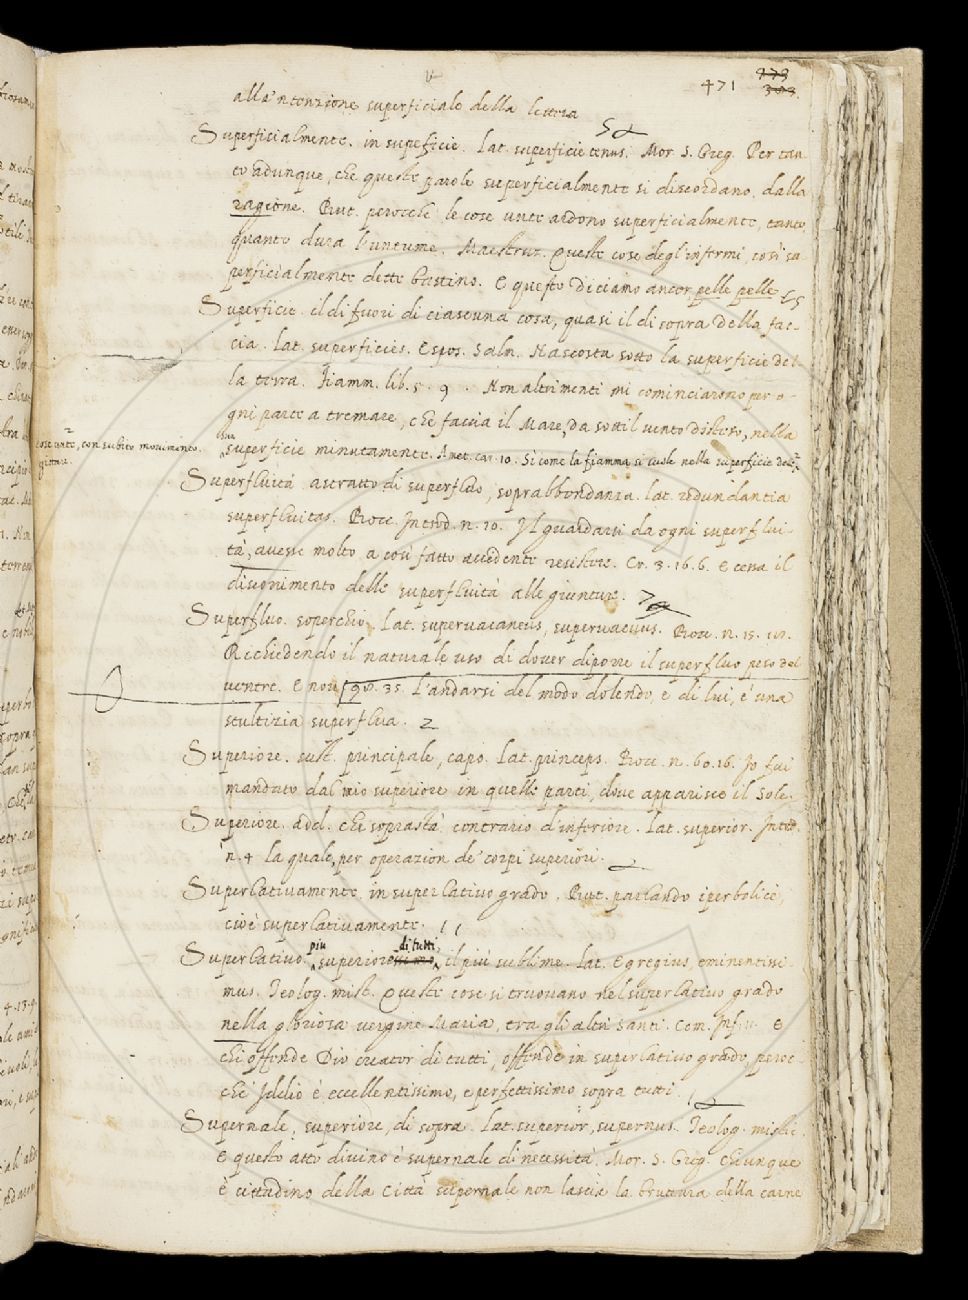 V
471 473
303
alla 'ntenzione superficiale della lettera
Superficialmente. in supeficie. Lat. superficie tenus. Mor. S. Greg. Per tan-
to adunque, che queste parole superficialmente si discordano dalla
ragione. But. perocchè le cose unte ardono superficialmente, tanto,
quanto dura l'untume. Maestruz. Queste cose degl'infermi, così su-
perficialmente dette bastino. E questo diciamo ancor pelle pelle
Superficie. il di fuori di ciascuna cosa, quasi il di sopra della fac-
cia. Lat. superficies. Espos. Salm. Nascosta sotto la superficie del-
la terra. Fiamm. lib. 5. 9. Non altrimenti mi cominciarono per o-
gni parte a tremare, che faccia il Mare, da sottil vento disteso, nella
sua superficie minutamente. Amet. car. 10. Sì come la fiamma si suole nella superficie delle
cose unte, con subito movimento.
gittare.
Superfluità astratto di superfluo, soprabbondanza. lat. redundantia
superfluitas. Bocc. Introd. n. 10. Il guardarsi da ogni superflui-
tà, avesse molto a così fatto accidente resistere. Cr. 3. 16. 6. E cessa il
discorrimento delle superfluità alle giunture.
Superfluo. soperchio. Lat. supervacaneus, supervacuus. Bocc. n. 15. 10.
Richiedendo il naturale uso di dover diporre il superfluo peso del
ventre. E nov. 35. L'andarsi del modo dolendo, e di lui, è una
stultizia superflua. 2
Superiore. sust. principale, capo. Lat. princeps. Bocc. n. 60. 16. Io fui
mandato dal mio superiore in quelle parti, dove apparisce il Sole.
Superiore. add. chi soprastà contrario d'inferiore. Lat. superior. Introd.
n. 4 la quale, per operazion de' corpi superiori.
Superlativamente, in superlativo grado. But. parlando iperbolice,
cioè superlativamente.
Superlativo. più superiore di tutti, il più sublime. Lat. Egregius, eminentissi-
mus. Teolog. mist. Queste cose si truovano nel superlativo grado
nella gloriosa vergine Maria, tra gli altri Santi. Com. Inf. 11. E
chi offende Dio creator di tutti, offende in superlativo grado, peroc-
chè Iddio è eccellentissimo, e perfettissimo sopra tutti.
Supernale, superiore, di sopra. Lat. superior, supernus. Teolog. mist.
E questo atto divino è supernale di necessità. Mor. S. Greg. Chiunque
è cittadino della Città supernale non lascia la bruttura della carne